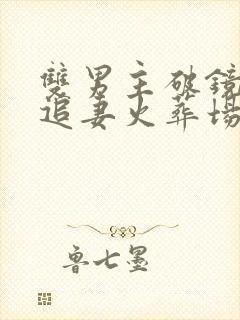 雙男主破鏡
追妻火葬場
魯七墨